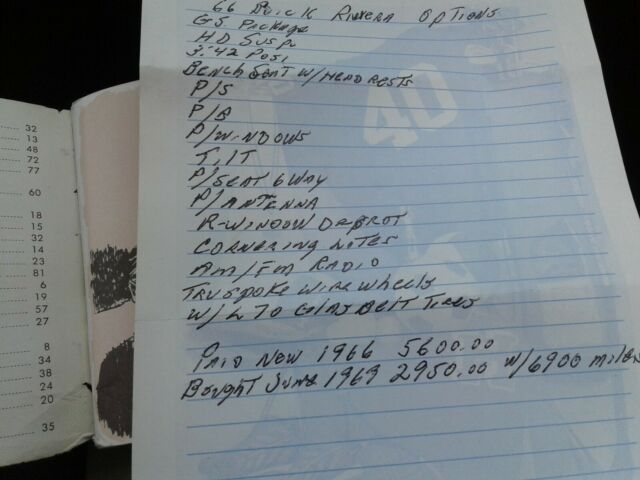 66 Buick Riviera Options
GS Package
HD Susp
3:42 Posi
Bench Seat w/Headrests
P/S
P/B
P/Windows
Tilt
P/Seat 6 Way
P/Antenna
R-Window Defrot
Cornering Lites
Am/Fm Radio
Tru Spoke Wire Wheels
w/L70 Glas Belt Tires
Paid New 1966 5600.00
Bought June 1969 2950.00 w/6900 miles
40
32
13
48
72
77
60
18
15
32
14
23
81
6
19
57
27
8
34
38
24
20
35